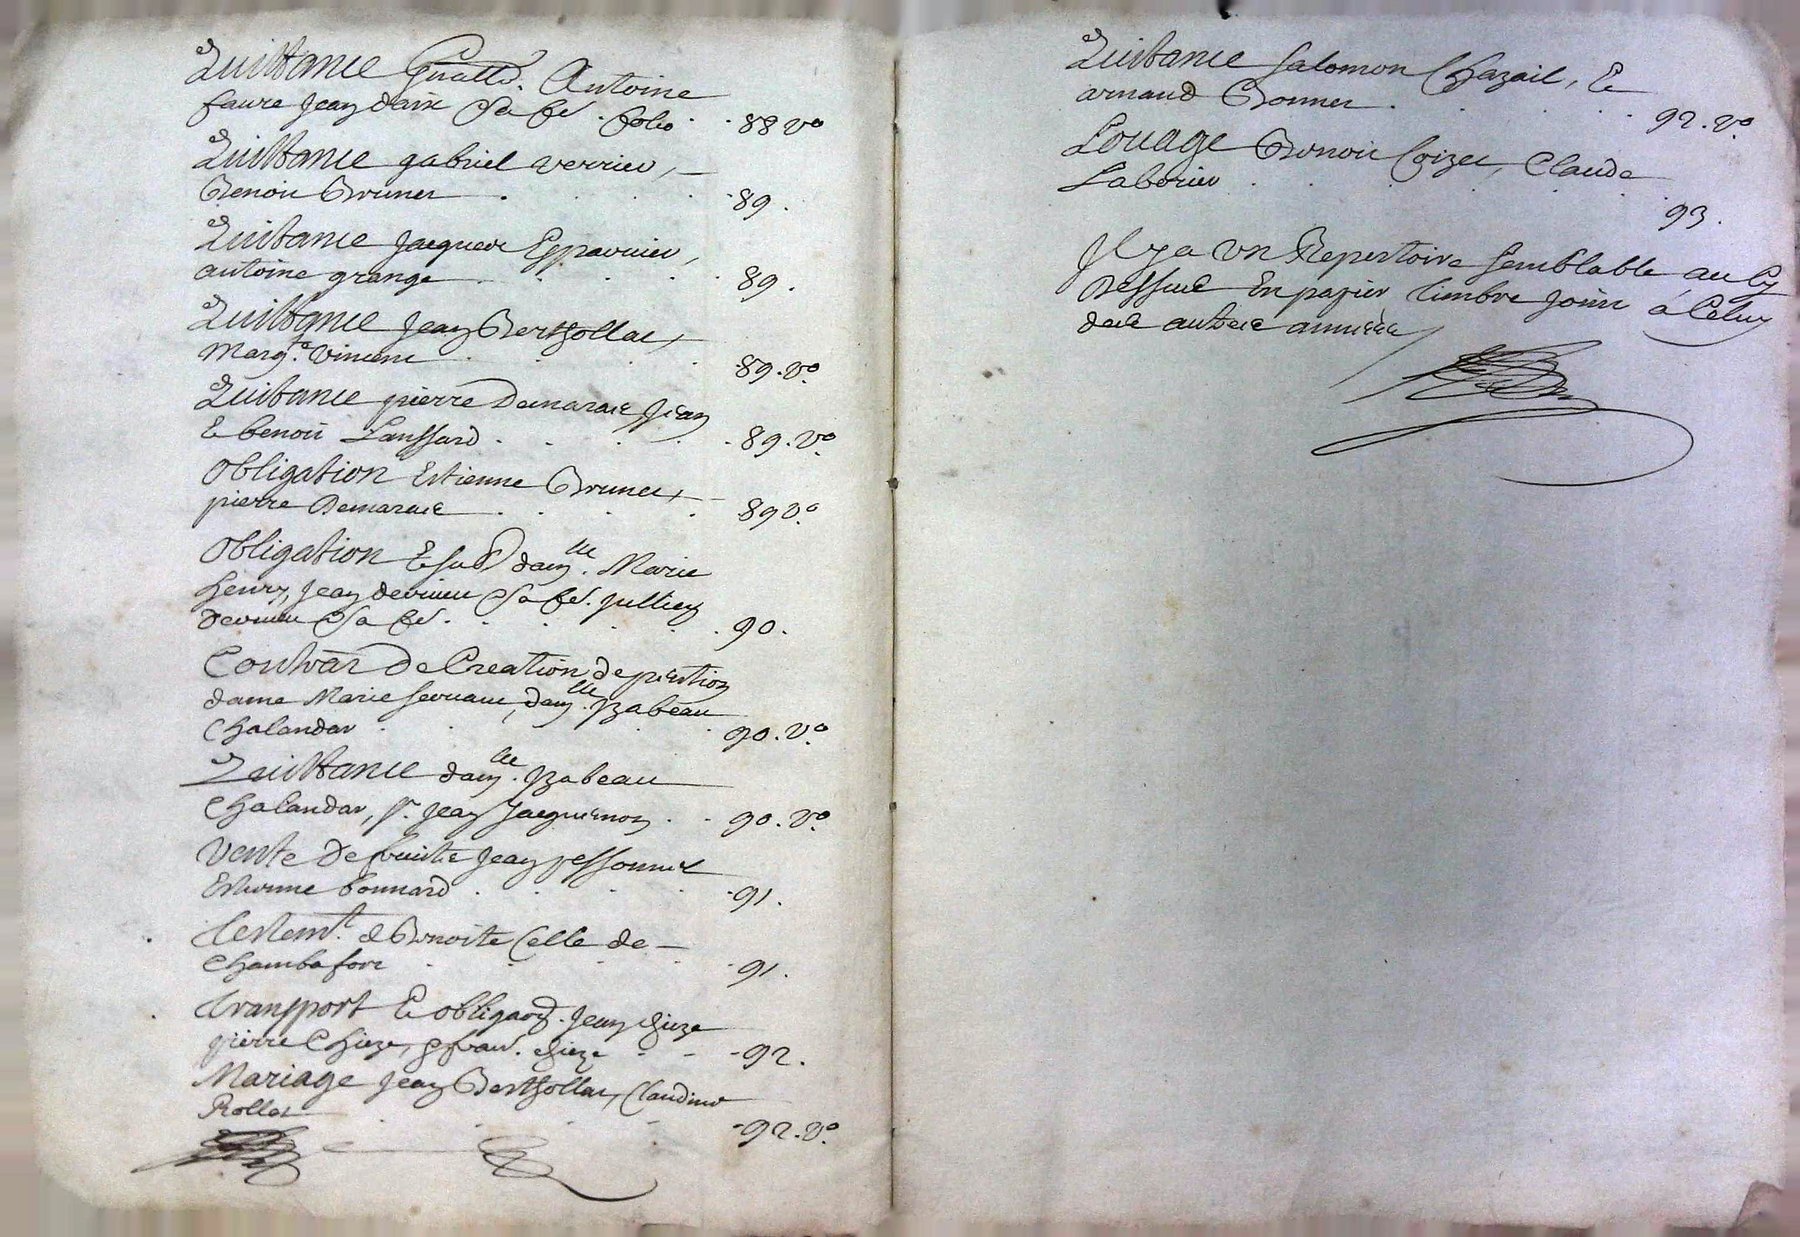 Quittance Antoine
faure Jean daix Sa fe. folio. 88 vo
Quittance gabriel verrier,
Benoit Brunet . 89.
Quittance Jacques Esparvier,
antoine grange . 89.
Quittance Jean Berthollat,
Margte. vincent . 89. Vo.
Quittance pierre Demarait Jean
& benoit Lanssard . 89. Vo.
Obligation Estienne Brunet,
pierre Demarait . 89 Vo.
Obligation & damlle. Marie
henry, Jean devinieu Sa fe. Jullien
devinieu Sa fe. 90.
Contrat De Creation de pention
dame Marie damlle. Izabeau
Chalandar . 90. Vo.
Quittance damlle. Izabeau
Chalandar, Sr. Jean Jacquemon . 90. Vo.
Vente De fruits Jean pessonnel
Estienne bonnard . 91.
Testemt. de Benoite Celle de
Chambafort . 91.
Transport & obligaon. Jean chieze
pierre Chieze, & fran. chieze - 92.
Mariage Jean Berthollat, Claudine
Rollet . 92. Vo.
Quittance Salomon Chazail, &
arnaud Bonnet . 92. Vo.
Louage Benoit Coizet, Claude
Laborier . 93.
Il y a Un Repertoire Semblable au Cy
Dessus En papier timbre joint à Celuy
des autres années